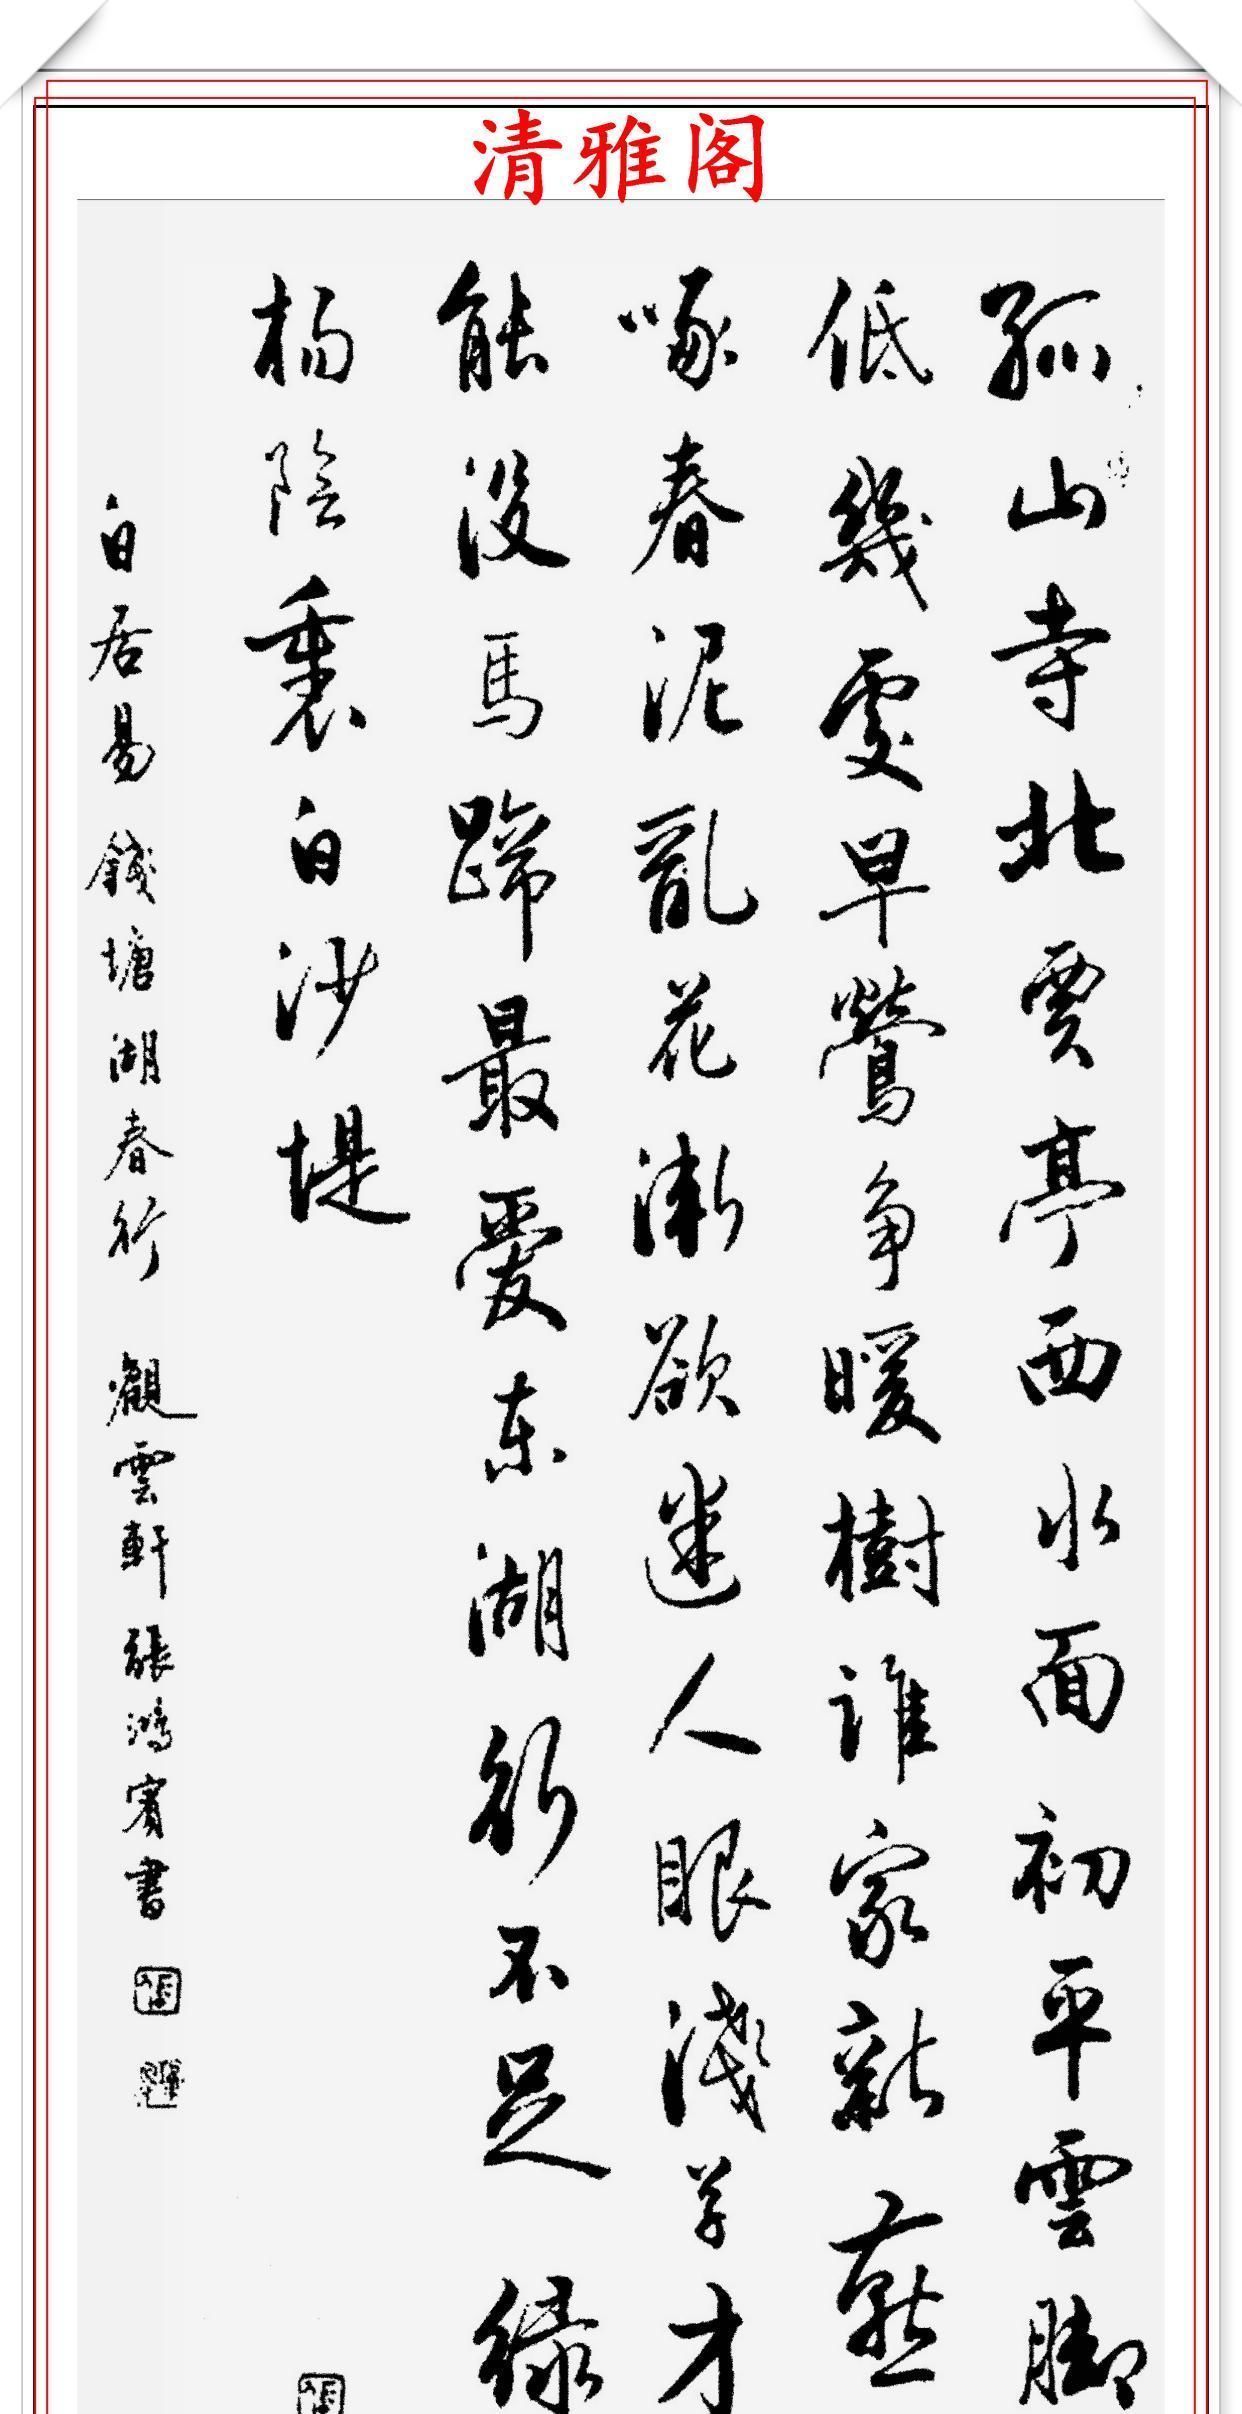 清雅阁
孤山寺北賈亭西水面初平雲脚
低幾處早鶯争暖樹誰家新燕
啄春泥亂花漸欲迷人眼淺草才
能没馬蹄最愛東湖行不足緑
楊陰裏白沙堤
白居易錢塘湖春行 觀雲軒張鴻賓書